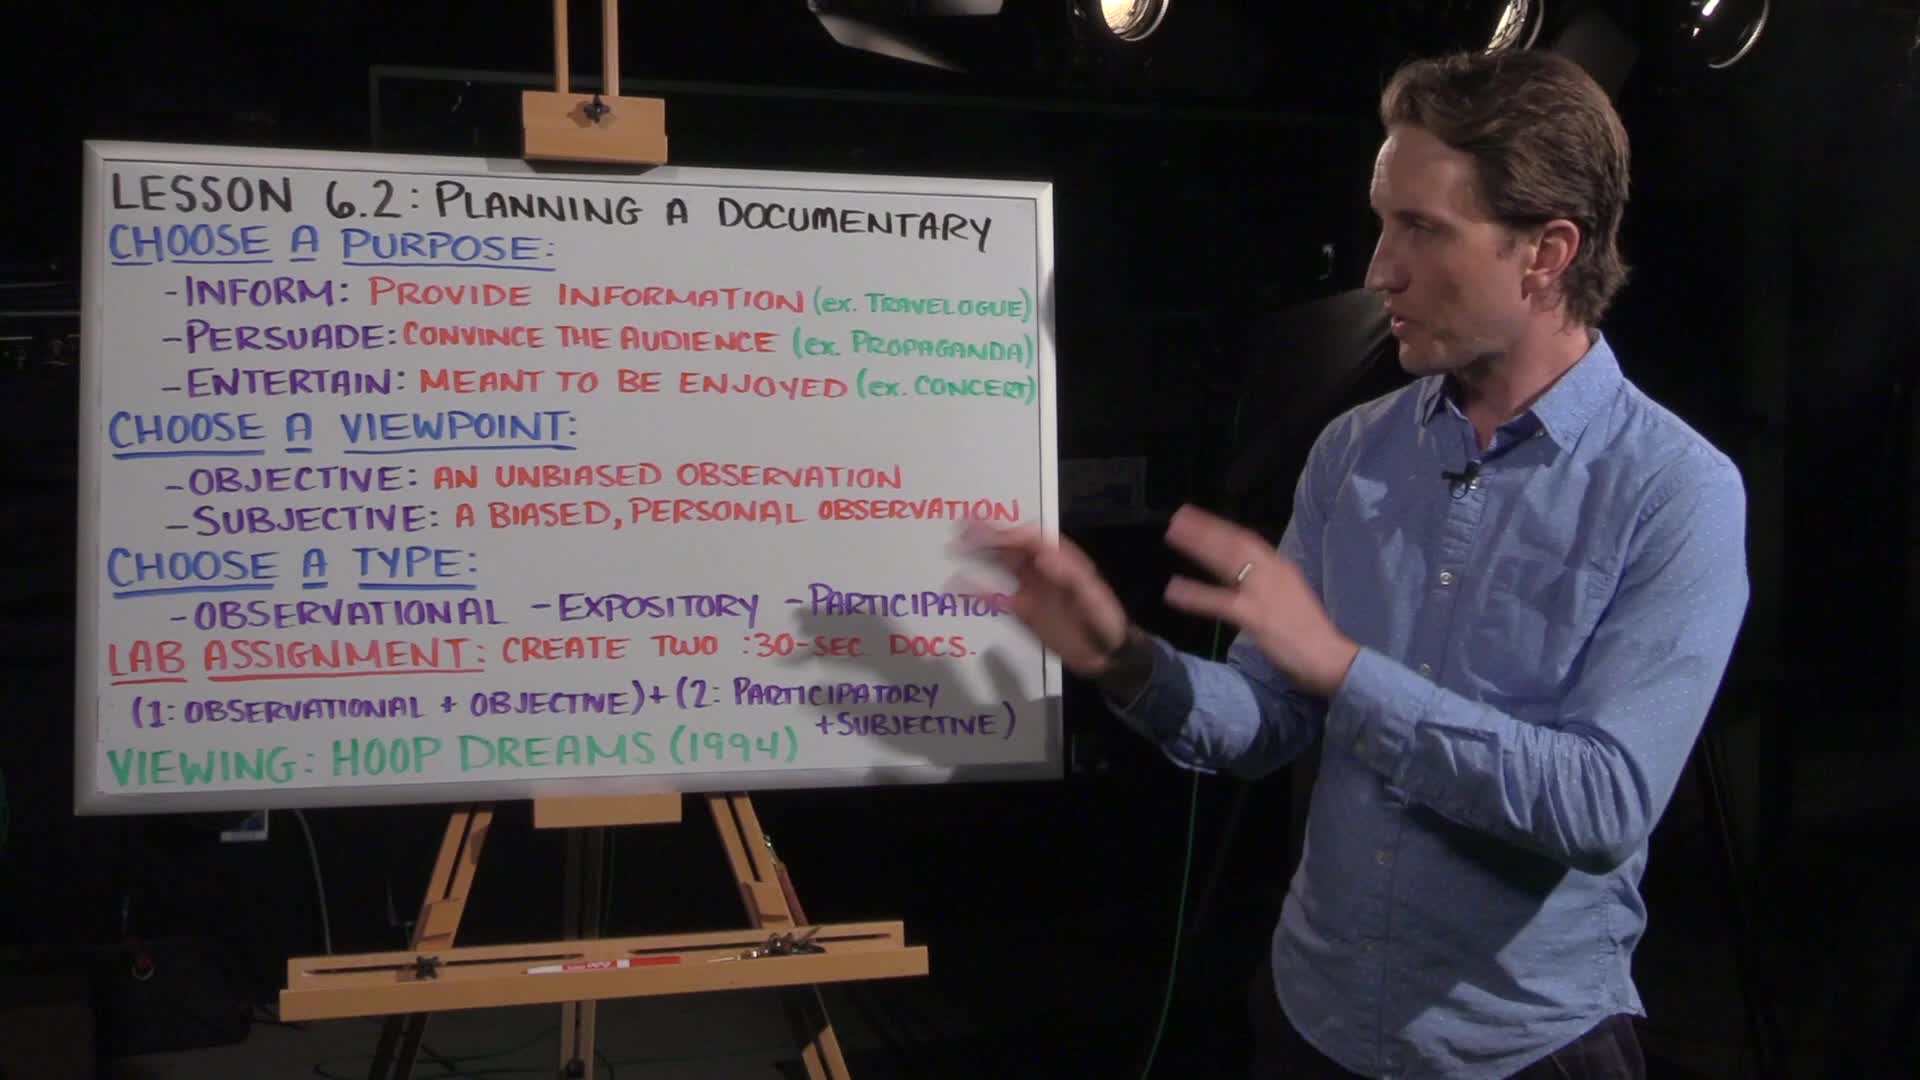 LESSON 6.2: PLANNING A DOCUMENTARY
CHOOSE A PURPOSE:
-INFORM: PROVIDE INFORMATION (ex. TRAVELOGUE)
-PERSUADE: CONVINCE THE AUDIENCE (ex. PROPAGANDA)
-ENTERTAIN: MEANT TO BE ENJOYED (ex. CONCERT)
CHOOSE A VIEWPOINT:
-OBJECTIVE: AN UNBIASED OBSERVATION
-SUBJECTIVE: A BIASED, PERSONAL OBSERVATION
CHOOSE A TYPE:
-OBSERVATIONAL -EXPOSITORY -PARTICIPATOR
LAB ASSIGNMENT: CREATE TWO :30-SEC DOCS.
(1: OBSERVATIONAL + OBJECTIVE) + (2: PARTICIPATORY
+SUBJECTIVE)
VIEWING: HOOP DREAMS (1994)